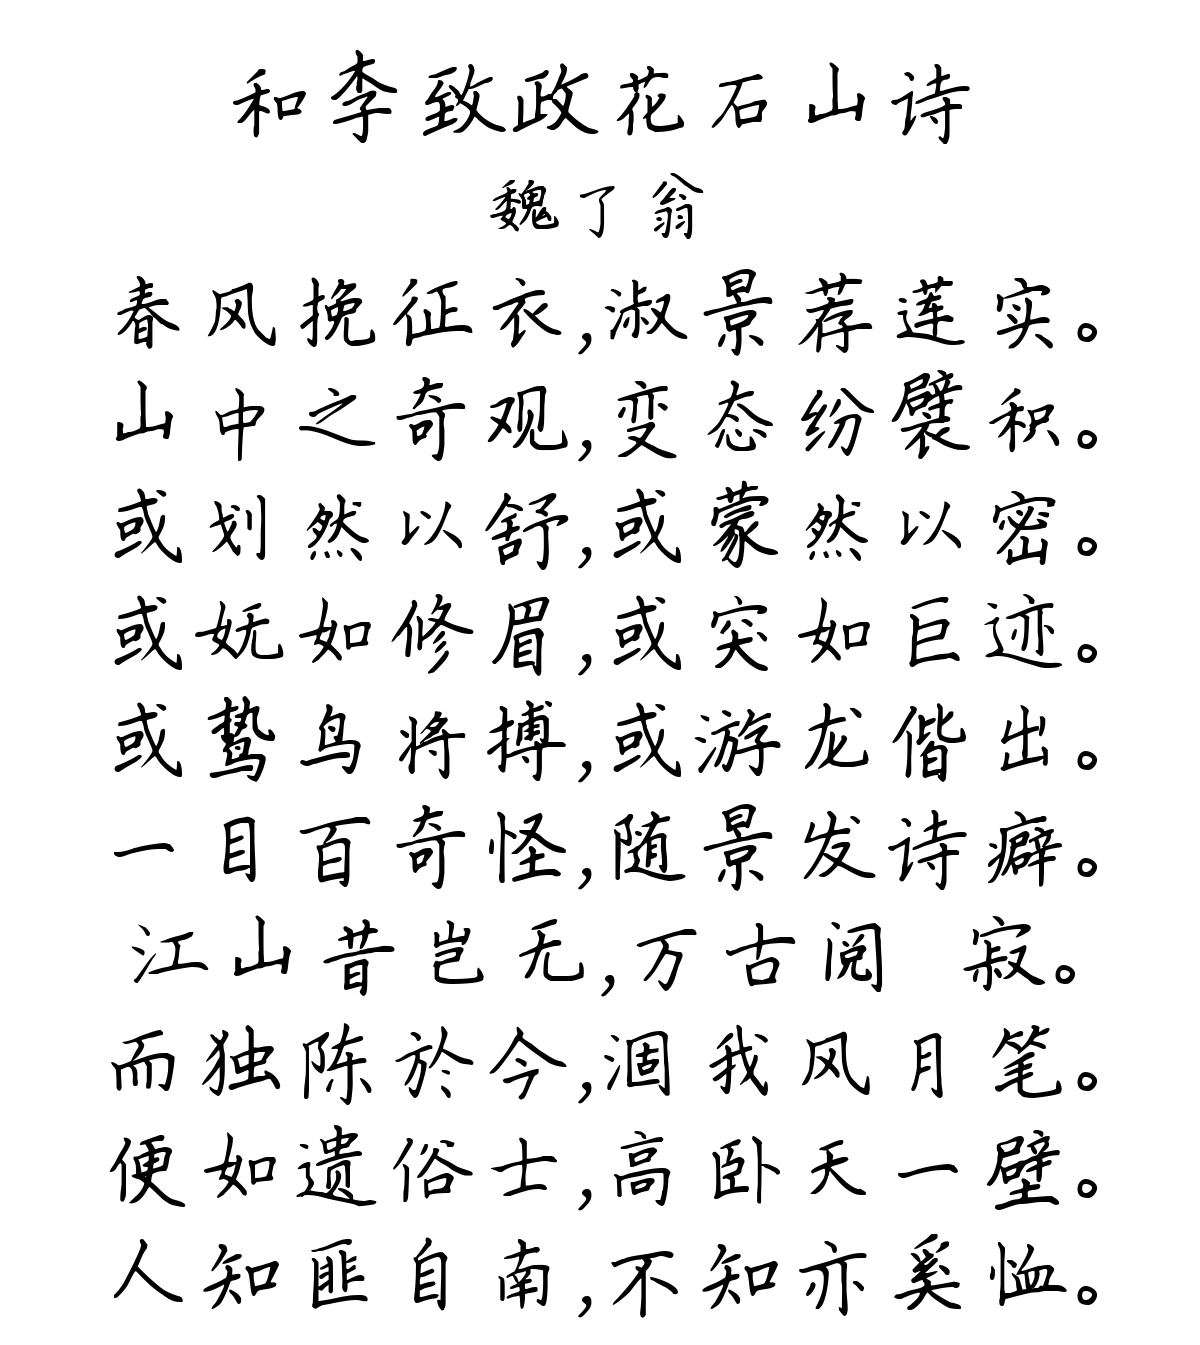 和李致政花石山诗
魏了翁
春风挽征衣,淑景荐莲实。
山中之奇观,变态纷襞积。
或划然以舒,或蒙然以密。
或妩如修眉,或突如巨迹。
或鸷鸟将搏,或游龙偕出。
一目百奇怪,随景发诗癖。
江山昔岂无,万古阅 寂。
而独陈於今,涸我风月笔。
便如遗俗士,高卧天一壁。
人知匪自南,不知亦奚恤。